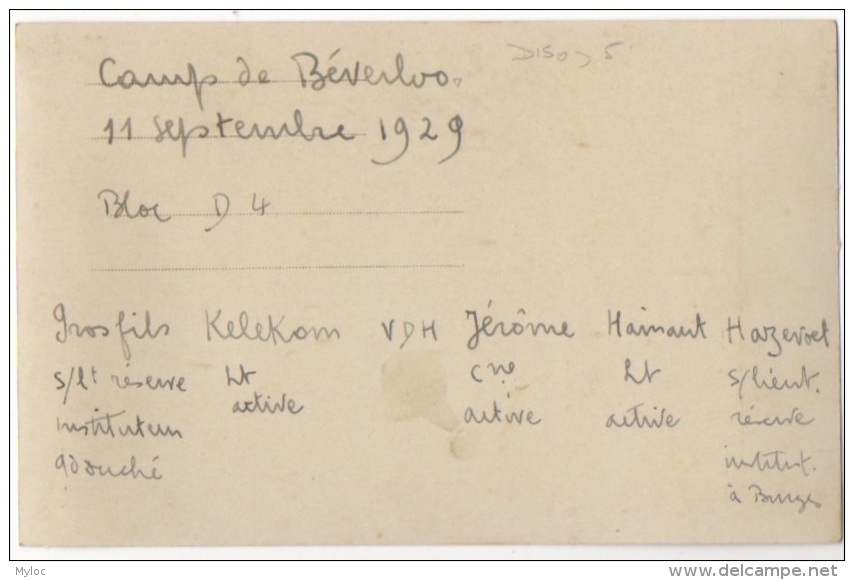 Camp de Béverloo.
11 septembre 1929
Bloc D 4
Grosfils Kelekom VDH Jérôme Hainaut Hazevoet
s/lt réserve Lt cne Lt s/lieut.
instituteur active active active réserve
institut.
à Bruges
Myloc
www.delcampe.net